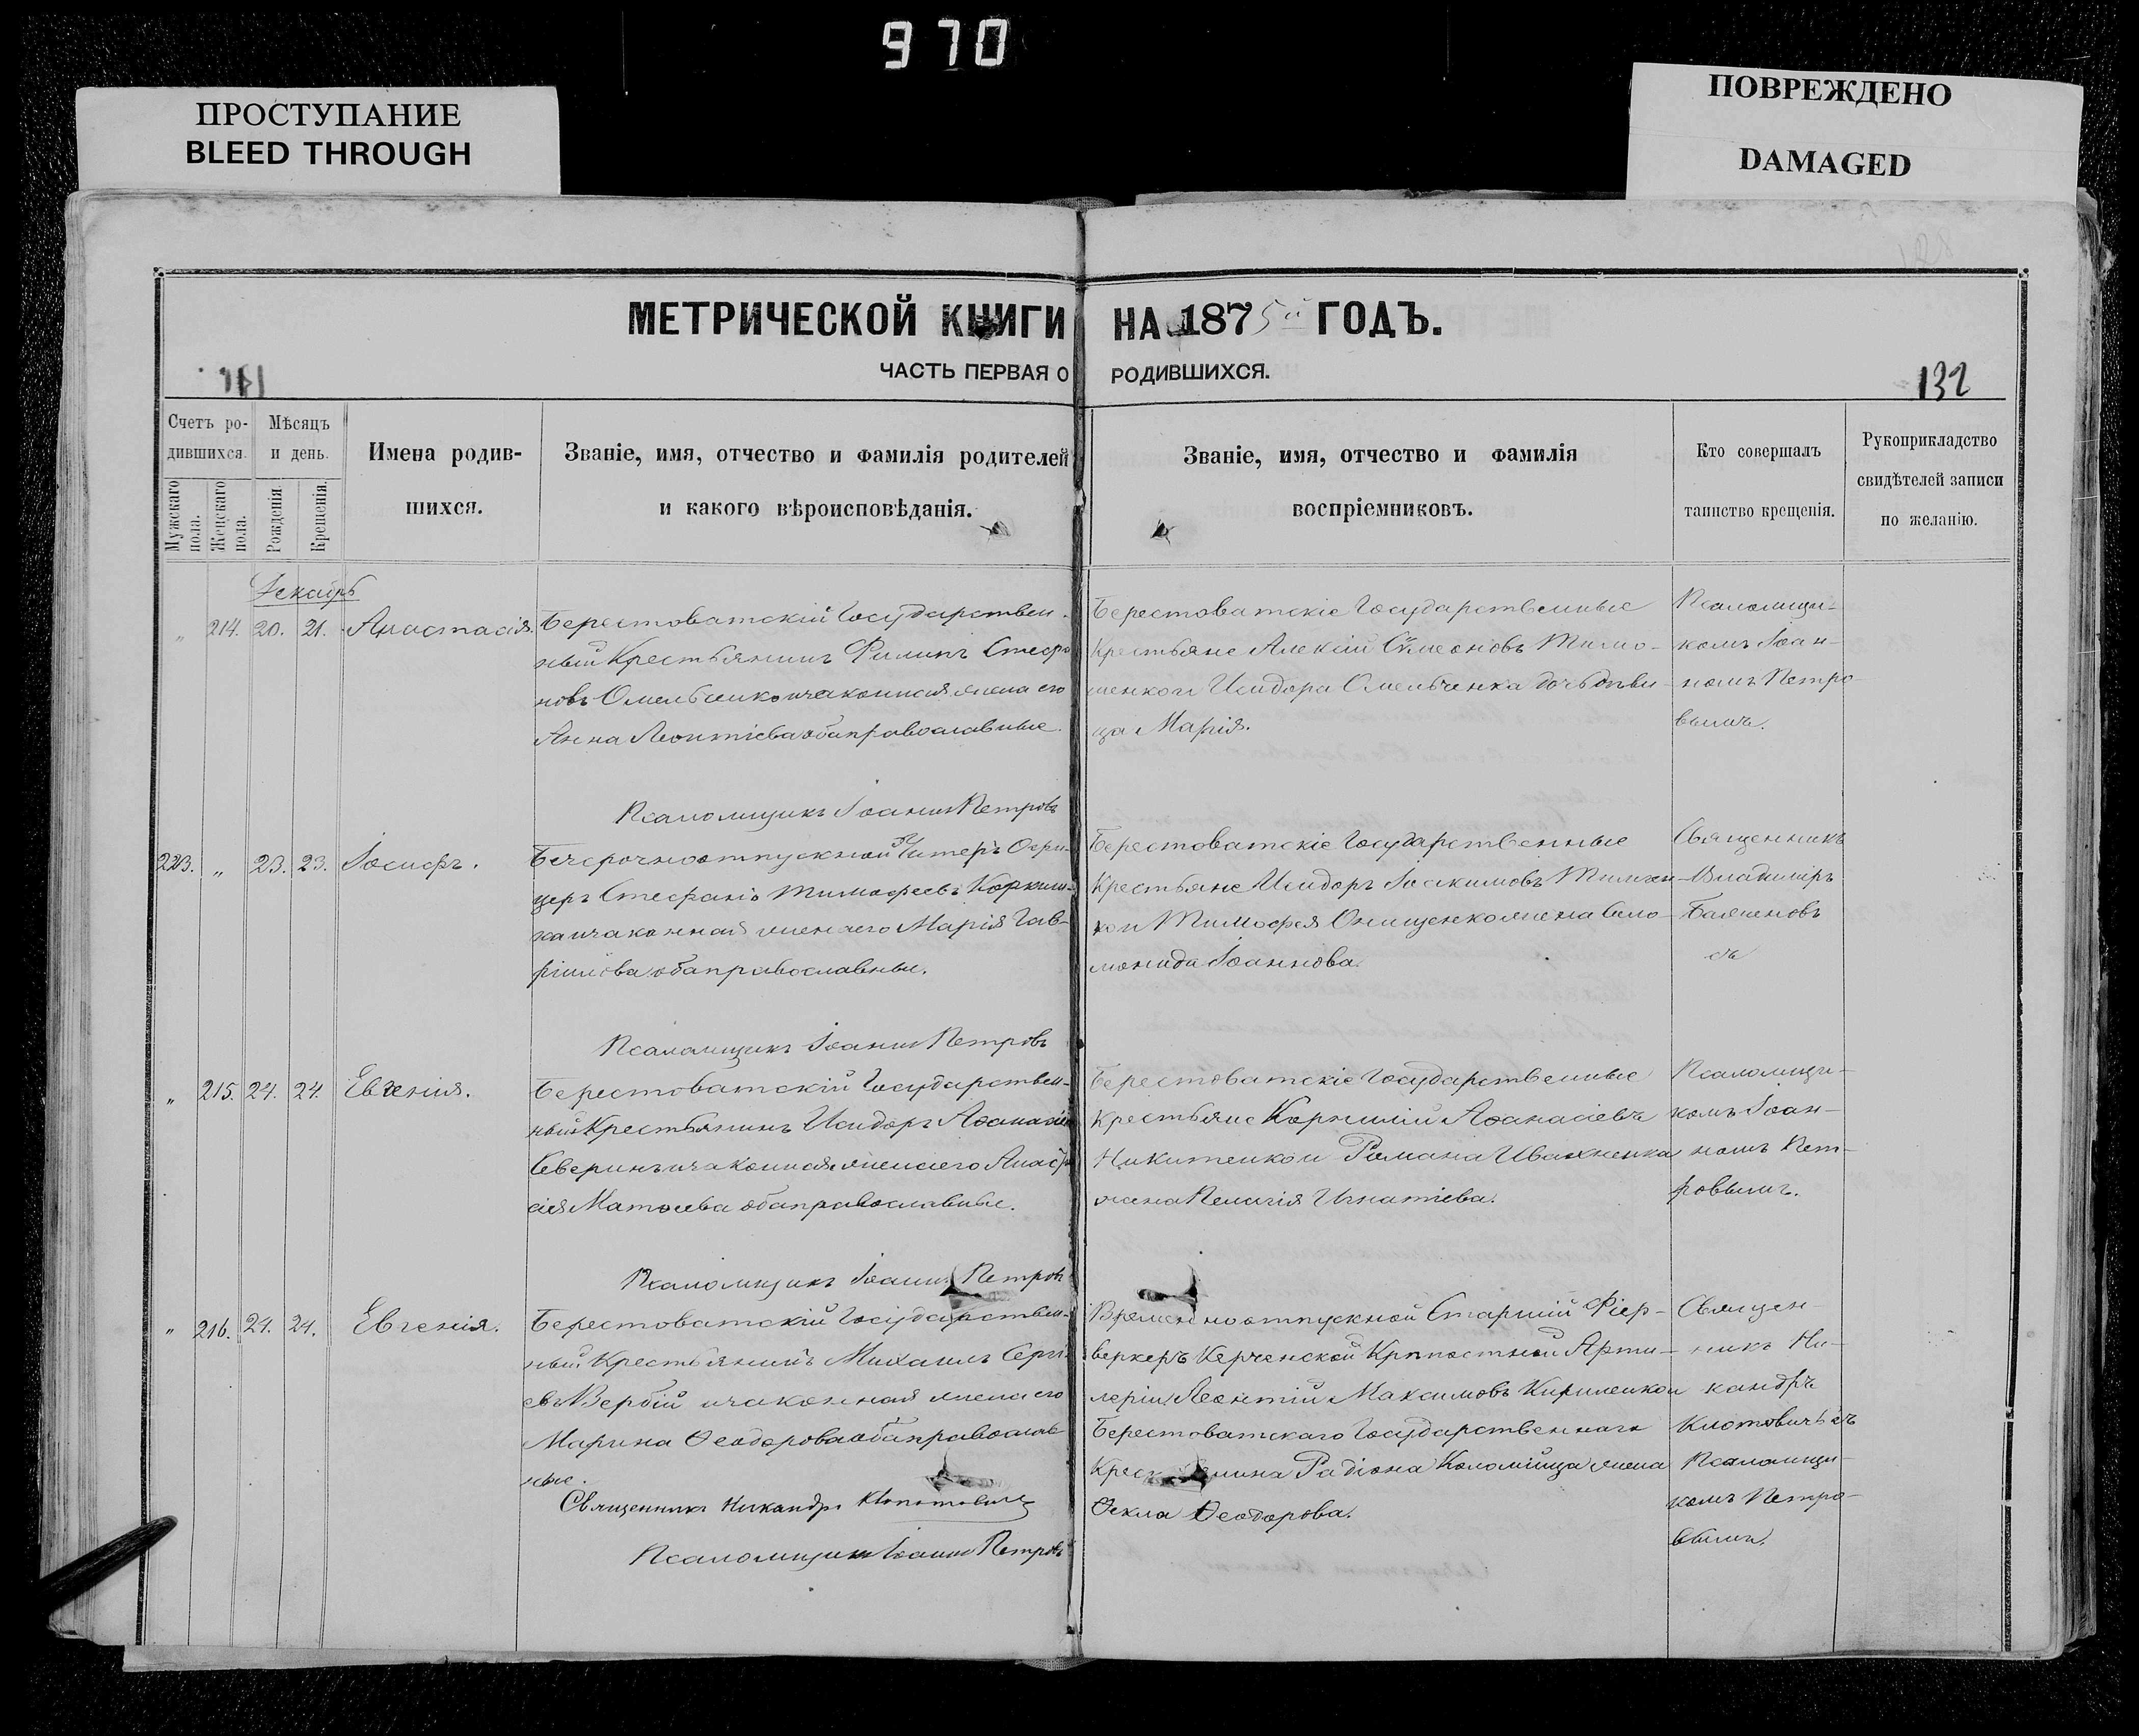 970
ПРОСТУПАНИЕ
BLEED THROUGH
ПОВРЕЖДЕНО
DAMAGED
МЕТРИЧЕСКОЙ КНИГИ НА 1875й ГОДЪ.
ЧАСТЬ ПЕРВАЯ О РОДИВШИХСЯ.
132
Счетъ ро-
дившихся.
Мужскаго пола.
Женскаго пола.
Мѣсяцъ
и день.
Рожденія.
Крещенія.
Имена родив-
шихся.
Званіе, имя, отчество и фамилія родителей
и какого вѣроисповѣданія.
Званіе, имя, отчество и фамилія
воспріемниковъ.
Кто совершалъ
таинство крещенія.
Рукоприкладство
свидѣтелей записи
по желанію.
Декабрь
" 214. 20. 21. Анастасія.
Берестоватскій Государствен-
ный Крестьянинъ Филипъ Стефа
новъ Омельченко и законная жена его
Анна Леонтіева оба православные.
Берестоватскіе Государственные
Крестьяне Алексій Сѵмеоновъ Тимо-
шенко и Исидора Омельченка дочь дѣви-
ца Марія.
Псаломщи-
комъ Іоан-
номъ Петро
вымъ.
Псаломщикъ Іоаннъ Петровъ
223. " 23. 23. Іосифъ.
Безсрочноотпускной Унтеръ Офи-
церъ Стефанъ Тимофеевъ
и законная жена его Марія Гав-
ріилова оба православны.
Берестоватскіе Государственные
Крестьяне Исидоръ Іоакимовъ
и Тимофея Онищенко жена Соло-
монида Іоаннова.
Священникъ
Владиміръ
Псаломщикъ Іоаннъ Петровъ
" 215. 24. 24. Евгенія.
Берестоватскій Государствен-
ный Крестьянинъ Исидоръ Аѳанасіев
Северинъ и законная жена его Анаста
сія Матѳеева оба православные.
Берестоватскіе Государственные
Крестьяне Корнилій Аѳанасіевъ
Никитенко и Романа Ивахненка
жена Пелагія Игнатіева.
Псаломщи-
комъ Іоан-
номъ Пет-
ровымъ.
Псаломщикъ Іоаннъ Петровъ
" 216. 24. 24. Евгенія.
Берестоватскій Государствен-
ный Крестьянинъ Михаилъ Сергі
евъ Вербій и законная жена его
Марина Ѳеодорова оба православ
ные.
Временноотпускной Старшій Фіер-
веркеръ Керченской Крѣпостной Арти-
леріи Леонтій Максимовъ Кириленко и
Берестоватскаго Государственнаго
Крестьянина Радіона Коломійца жена
Ѳекла Ѳеодорова.
Священ-
никъ Ни-
кандръ
съ
Псаломщи-
комъ Петро-
вымъ.
Священникъ Никандръ
Псаломщикъ Іоаннъ Петровъ